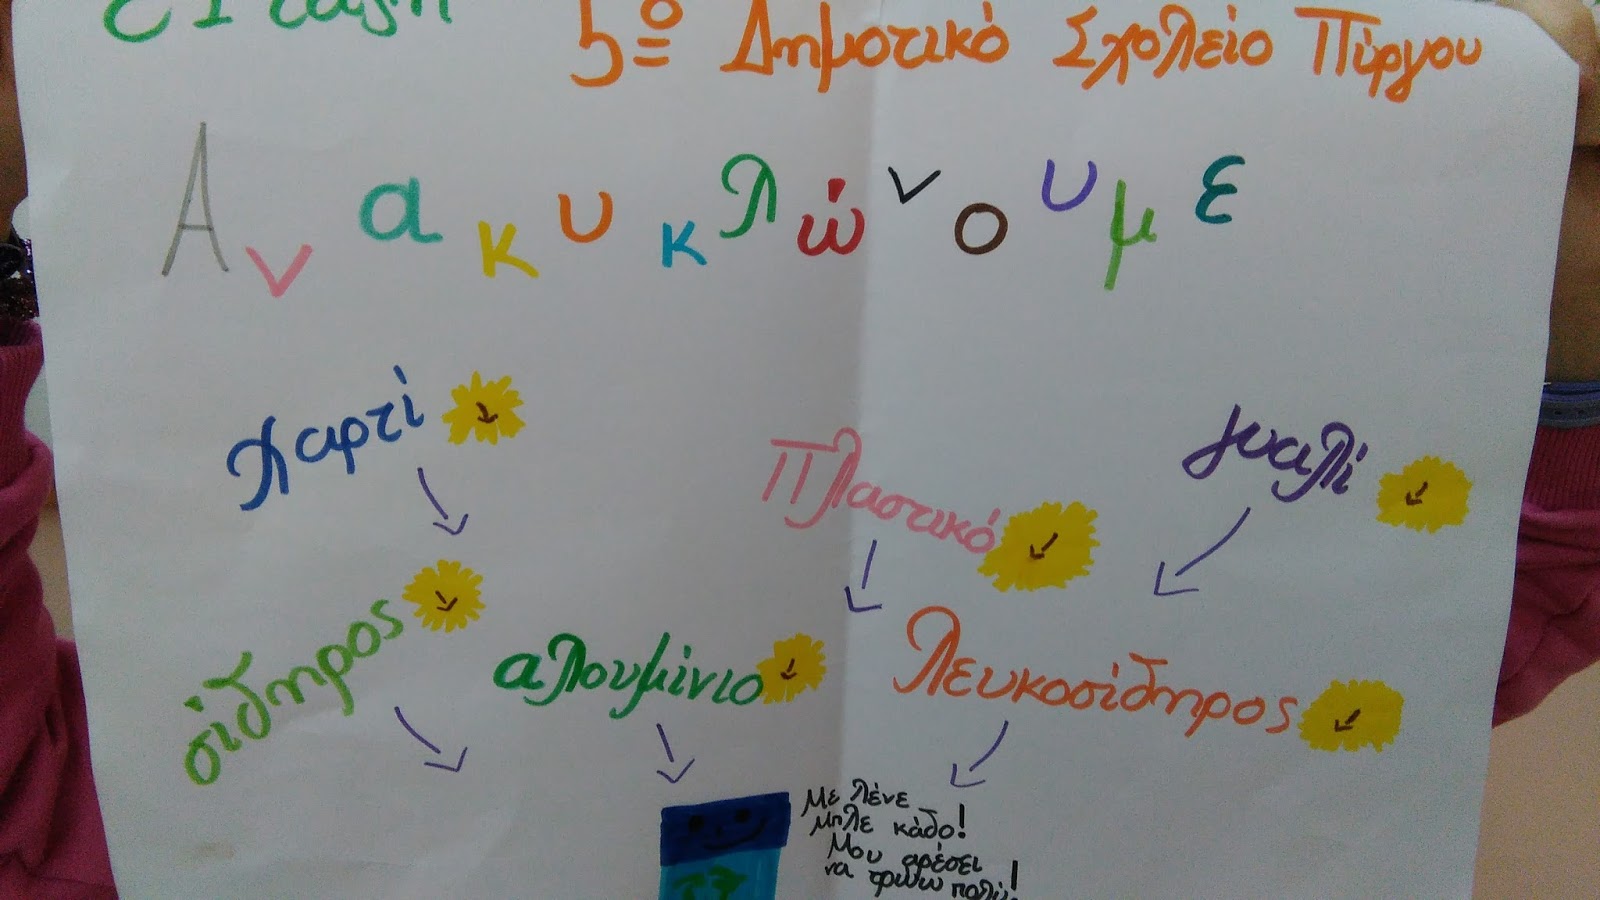 τάξη
5º Δημοτικό Σχολείο Πύργου
Ανακυκλώνουμε
Χαρτί
Πλαστικό
γυαλί
σίδηρος
αλουμίνιο
λευκοσίδηρος
Με λένε
μπλε κάδο!
Μου αρέσει
να τρώω πολύ!